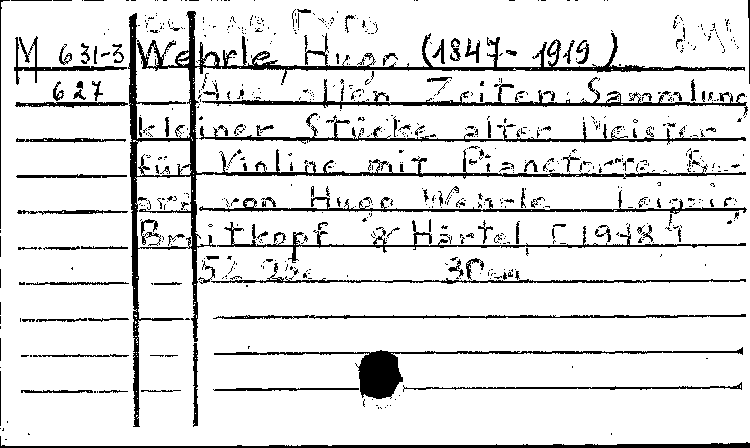 M 631-3 Wehrle, Hugo (1847-1919)
627 Aus allen Zeiten. Sammlung
kleiner Stücke alter Meister
für Violine mit Pianoforte. Be-
arb. von Hugo Wehrle Leipzig,
Breitkopf & Härtel, [1948]
52 25s. 30cm